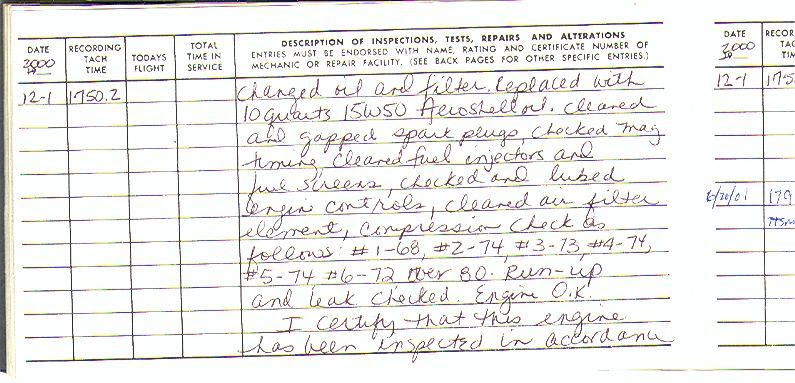 DATE RECORDING TACH TIME TODAYS FLIGHT TOTAL TIME IN SERVICE DESCRIPTION OF INSPECTIONS, TESTS, REPAIRS AND ALTERATIONS
ENTRIES MUST BE ENDORSED WITH NAME, RATING AND CERTIFICATE NUMBER OF
MECHANIC OR REPAIR FACILITY. (SEE BACK PAGES FOR OTHER SPECIFIC ENTRIES.)
2000
12-1 1750.2 Changed oil and filter. Replaced with
10 quarts 15W50 Aeroshell oil. cleaned
and gapped spark plugs, checked mag
timing, cleaned fuel injectors and
fuel screens, checked and lubed
engin controls, cleaned air filter
element, compression check as
follows: #1-68, #2-74, #3-73, #4-74,
#5-74, #6-72 over 80. Run-up
and leak checked. Engine O.K.
I certify that this engine
has been inspected in accordance
DATE RECOR TAC TIM
2000
12-1 175
6/20/01 179